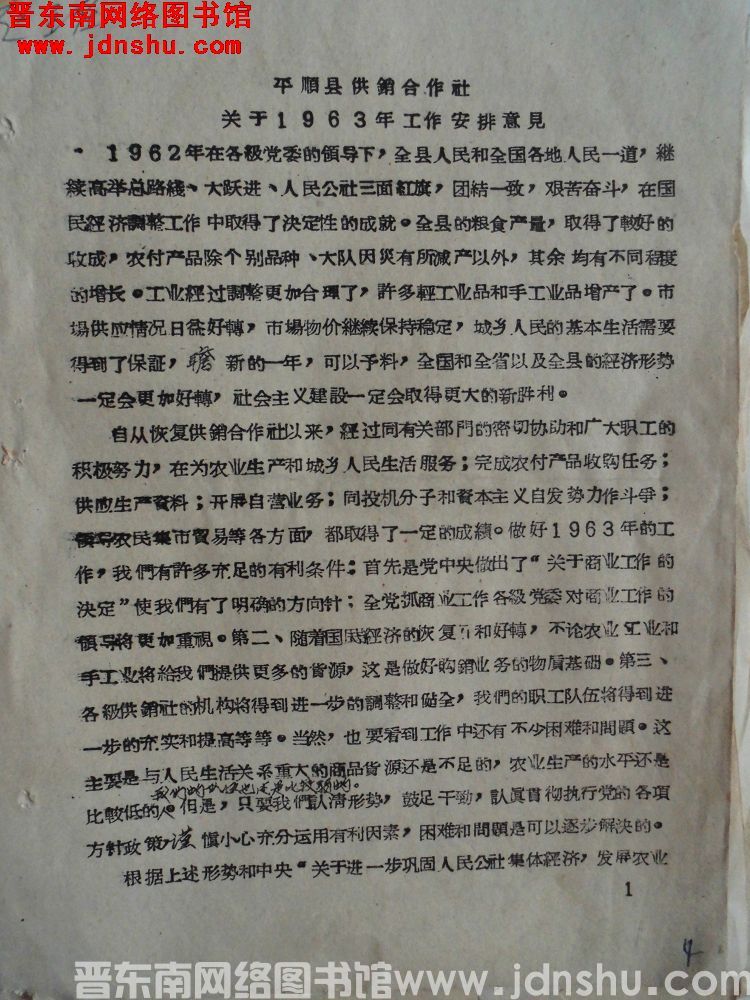 晋东南网络图书馆
www.jdnshu.com
平順县供銷合作社
关于1963年工作安排意見
1962年在各級党委的領导下，全县人民和全国各地人民一道，継
続高举总路綫、大跃进、人民公社三面紅旗，团結一致，艰苦奋斗，在国
民経济調整工作中取得了决定性的成就。全县的粮食产量，取得了較好的
收成，农付产品除个别品种、大队因災有所减产以外，其余均有不同程度
的增长。工业経过調整更加合理了，許多輕工业品和手工业品增产了。市
場供应情况日漸好轉，市場物价継续保持稳定，城乡人民的基本生活需要
得到了保証，瞻新的一年，可以予料，全国和全省以及全县的経济形势
一定会更加好轉，社会主义建設一定会取得更大的新胜利。
自从恢复供銷合作社以来，経过同有关部門的密切协助和广大职工的
积极努力，在为农业生产和城乡人民生活服务；完成农付产品收购任务；
供应生产資料；开展自营业务；同投机分子和資本主义自发势力作斗爭；
領导农民集市貿易等各方面，都取得了一定的成績。做好1963年的工
作，我們有許多充足的有利条件：首先是党中央做出了“关于商业工作的
决定”使我們有了明确的方向針；全党抓商业工作各級党委对商业工作的
領导将更加重視。第二、随着国民経济的恢复和好轉，不论农业工业和
手工业将給我們提供更多的貨源，这是做好购銷业务的物質基础。第三、
各級供銷社的机构将得到进一步的調整和健全，我們的职工队伍将得到进
一步的充实和提高等等。当然，也要看到工作中还有不少困难和問題。这
主要是与人民生活关系重大的商品貨源还是不足的，农业生产的水平还是
比較低的。但是，只要我們認清形势，鼓足干勁，認眞貫彻执行党的各項
方針政策，謹慎小心充分运用有利因素，困难和問題是可以逐步解决的。
根据上述形势和中央“关于进一步巩固人民公社集体経济，发展农业
1
4
晋东南网络图书馆www.jdnshu.com